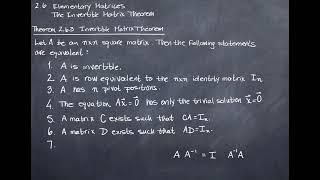 2.6 Elementary Matrices
The Invertible Matrix Theorem
Theorem 2.6.3 Invertible Matrix Theorem
Let A be an n×n square matrix. Then the following statements
are equivalent:
1. A is invertible.
2. A is row equivalent to the n×n identity matrix Iₙ
3. A has n pivot positions.
4. The equation Ax⃗ = 0⃗ has only the trivial solution x⃗ = 0⃗
5. A matrix C exists such that CA = Iₙ.
6. A matrix D exists such that AD = Iₙ.
7.
A A⁻¹ = I A⁻¹A